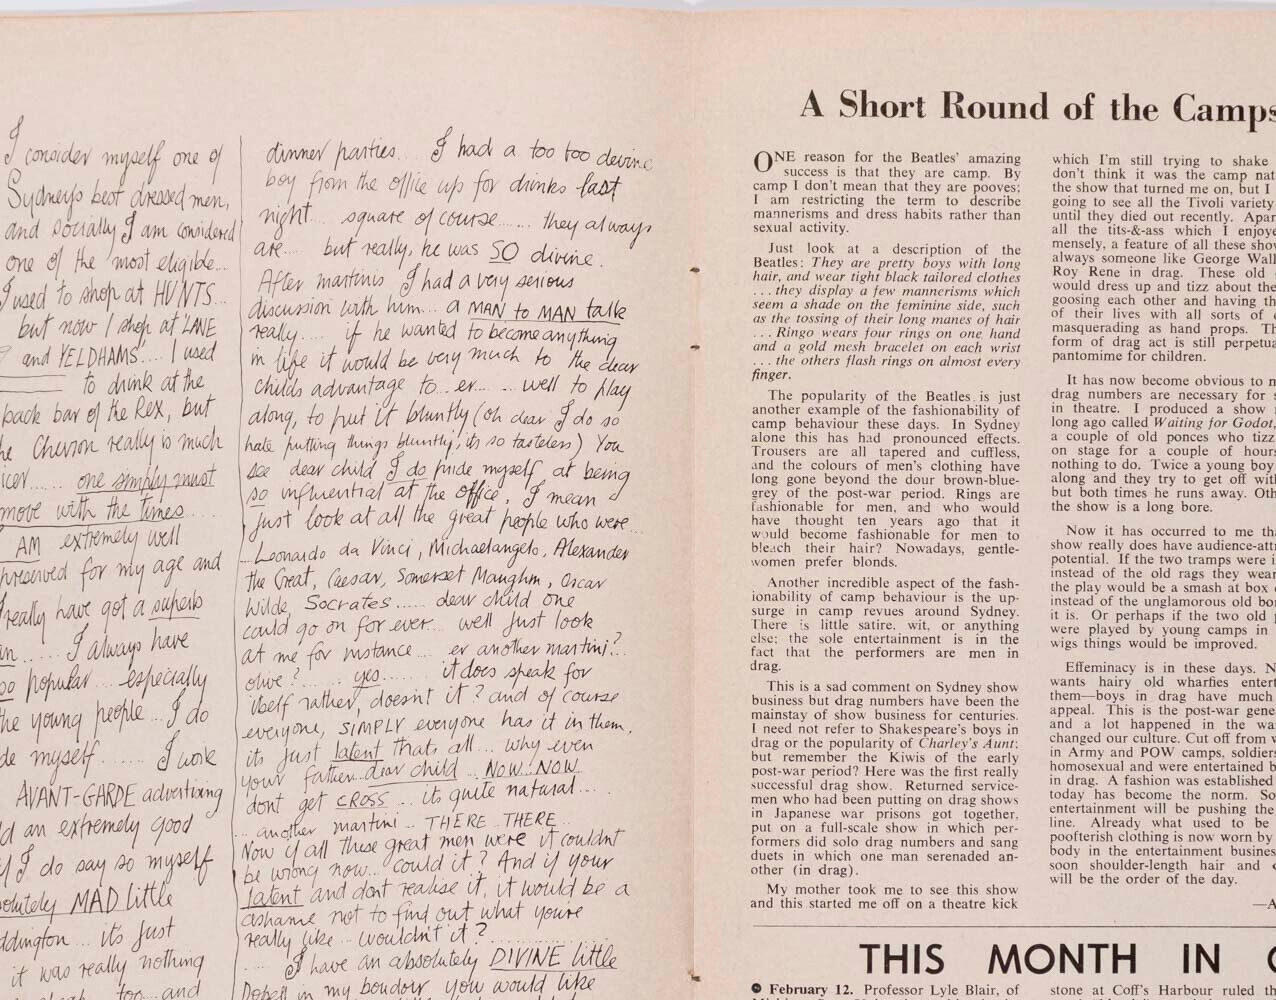 I
consider myself one of
Sydneys best dressed men,
and socially I am considered
one of the most eligible...
I used to shop at HUNTS...
but now I shop at 'LANE
and YELDHAMS'.... I used
to drink at the
back bar of the Rex, but
Chevron really is much
...... one simply must
move with the times ....
AM extremely well
preserved for my age and
really have got a superb
..... I always have
so popular .... especially
the young people ... I do
myself ...... I work
AVANT-GARDE advertising
an extremely good
I do say so myself
MAD little
... it's just
it was really nothing
too ... and
dinner parties... I had a too too devine
boy from the office up for drinks last
night.... square of course....... they always
are.... but really, he was SO divine.
After martinis I had a very serious
discussion with him... a MAN to MAN talk
really.... if he wanted to become anything
in life it would be very much to the dear
childs advantage to... er... ... well to play
along, to put it bluntly (oh dear I do so
hate putting things bluntly, its so tasteless) You
see dear child I do pride myself at being
so influential at the office, I mean
just look at all the great people who were...
Leonardo da Vinci, Michaelangelo, Alexander
the Great, Caesar, Somerset Maughm, Oscar
Wilde, Socrates...... dear child one
could go on for ever... well just look
at me for instance.... er another martini?..
olive?.... yes...... it does speak for
itself rather, doesnt it? and of course
everyone, SIMPLY everyone has it in them,
its just latent thats all... why even
your father..dear child...NOW..NOW..
dont get CROSS... its quite natural....
... another martini... THERE..THERE...
Now if all those great men were it couldnt
be wrong now... could it? And if your
latent and dont realise it, it would be a
ashame not to find out what you're
really like... wouldn't it?............
..... I have an absolutely DIVINE little
in my boudoir you would like
A Short Round of the Camps
ONE reason for the Beatles' amazing
success is that they are camp. By
camp I don't mean that they are pooves;
I am restricting the term to describe
mannerisms and dress habits rather than
sexual activity.
Just look at a description of the
Beatles: They are pretty boys with long
hair, and wear tight black tailored clothes
. . . they display a few mannerisms which
seem a shade on the feminine side, such
as the tossing of their long manes of hair
. . . Ringo wears four rings on one hand
and a gold mesh bracelet on each wrist
. . . the others flash rings on almost every
finger.
The popularity of the Beatles is just
another example of the fashionability of
camp behaviour these days. In Sydney
alone this has had pronounced effects.
Trousers are all tapered and cuffless,
and the colours of men's clothing have
long gone beyond the dour brown-blue-
grey of the post-war period. Rings are
fashionable for men, and who would
have thought ten years ago that it
would become fashionable for men to
bleach their hair? Nowadays, gentle-
women prefer blonds.
Another incredible aspect of the fash-
ionability of camp behaviour is the up-
surge in camp revues around Sydney.
There is little satire, wit, or anything
else; the sole entertainment is in the
fact that the performers are men in
drag.
This is a sad comment on Sydney show
business but drag numbers have been the
mainstay of show business for centuries.
I need not refer to Shakespeare's boys in
drag or the popularity of Charley's Aunt;
but remember the Kiwis of the early
post-war period? Here was the first really
successful drag show. Returned service-
men who had been putting on drag shows
in Japanese war prisons got together,
put on a full-scale show in which per-
formers did solo drag numbers and sang
duets in which one man serenaded an-
other (in drag).
My mother took me to see this show
and this started me off on a theatre kick
which I'm still trying to shake
don't think it was the camp nat
the show that turned me on, but I
going to see all the Tivoli variety
until they died out recently. Apar
all the tits-&-ass which I enjoye
mensely, a feature of all these show
always someone like George Wall
Roy Rene in drag. These old
would dress up and tizz about the
goosing each other and having th
of their lives with all sorts of
masquerading as hand props. Th
form of drag act is still perpetua
pantomime for children.
It has now become obvious to m
drag numbers are necessary for s
in theatre. I produced a show
long ago called Waiting for Godot,
a couple of old ponces who tizz
on stage for a couple of hours
nothing to do. Twice a young boy
along and they try to get off wit
but both times he runs away. Oth
the show is a long bore.
Now it has occurred to me tha
show really does have audience-att
potential. If the two tramps were i
instead of the old rags they wear
the play would be a smash at box
instead of the unglamorous old bo
it is. Or perhaps if the two old p
were played by young camps in
wigs things would be improved.
Effeminacy is in these days. N
wants hairy old wharfies entert
them—boys in drag have much
appeal. This is the post-war gene
and a lot happened in the wa
changed our culture. Cut off from w
in Army and POW camps, soldiers
homosexual and were entertained b
in drag. A fashion was established
today has become the norm. So
entertainment will be pushing the
line. Already what used to be
poofterish clothing is now worn by
body in the entertainment busines
soon shoulder-length hair and
will be the order of the day.
—A
THIS MONTH IN
February 12. Professor Lyle Blair, of
stone at Coff's Harbour ruled th